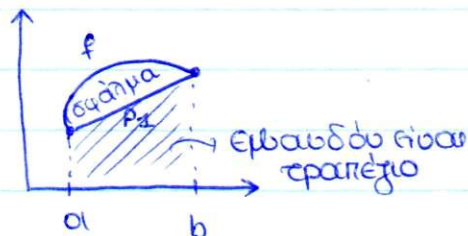 f
σφάλμα
P₁
εμβαδόν είναι
τραπέζιο
a
b